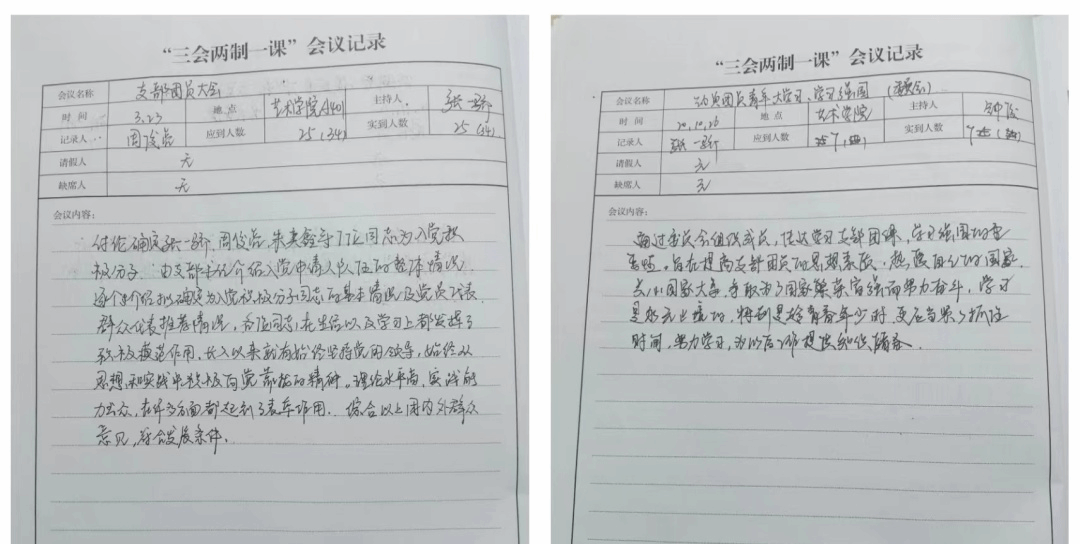 “三会两制一课”会议记录
会议名称 支部团员大会
时间 3.23 地点 艺术学院A401 主持人 张一
记录人 周俊 应到人数 25(34) 实到人数 25(34)
请假人 无
缺席人 无
会议内容:
讨论确定张一 周俊 朱美鑫等7位同志为入党积
极分子。由支部主任介绍入党申请人队伍的整体情况
逐个介绍拟确定为入党积极分子同志的基本情况及党员代表
群众代表推荐情况,各位同志在生活以及学习上都发挥了
积极模范作用,长入以来就有始终坚持党的领导,始终从
思想和实践中积极向党靠拢的精神。理论水平高,实践能
力出众,在许多方面都起到了表率作用。综合以上团内外群众
意见,符合发展条件。
“三会两制一课”会议记录
会议名称 动员团员青年大学习、学习强国
时间 20.10.26 地点 艺术学院 主持人
记录人 张一 应到人数 实到人数
请假人 无
缺席人 无
会议内容:
通过委员会组织成员,传达学习支部团课,学习强国的重
要性。旨在提高支部团员的思想素质,热爱自己的国家
关心国家大事,争取为了国家繁荣富强而努力奋斗,学习
是永无止境的,特别是趁青春年少时,更应当要抓住
时间,努力学习,为以后工作提供知识储备.